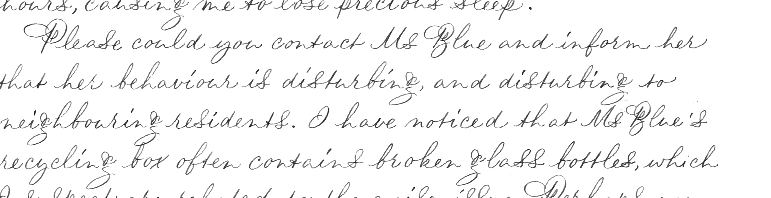 hours, causing me to lose precious sleep.
Please could you contact Ms Blue and inform her
that her behaviour is disturbing, and disturbing to
neighbouring residents. I have noticed that Ms Blue's
recycling box often contains broken glass bottles, which
I suspect are related to the